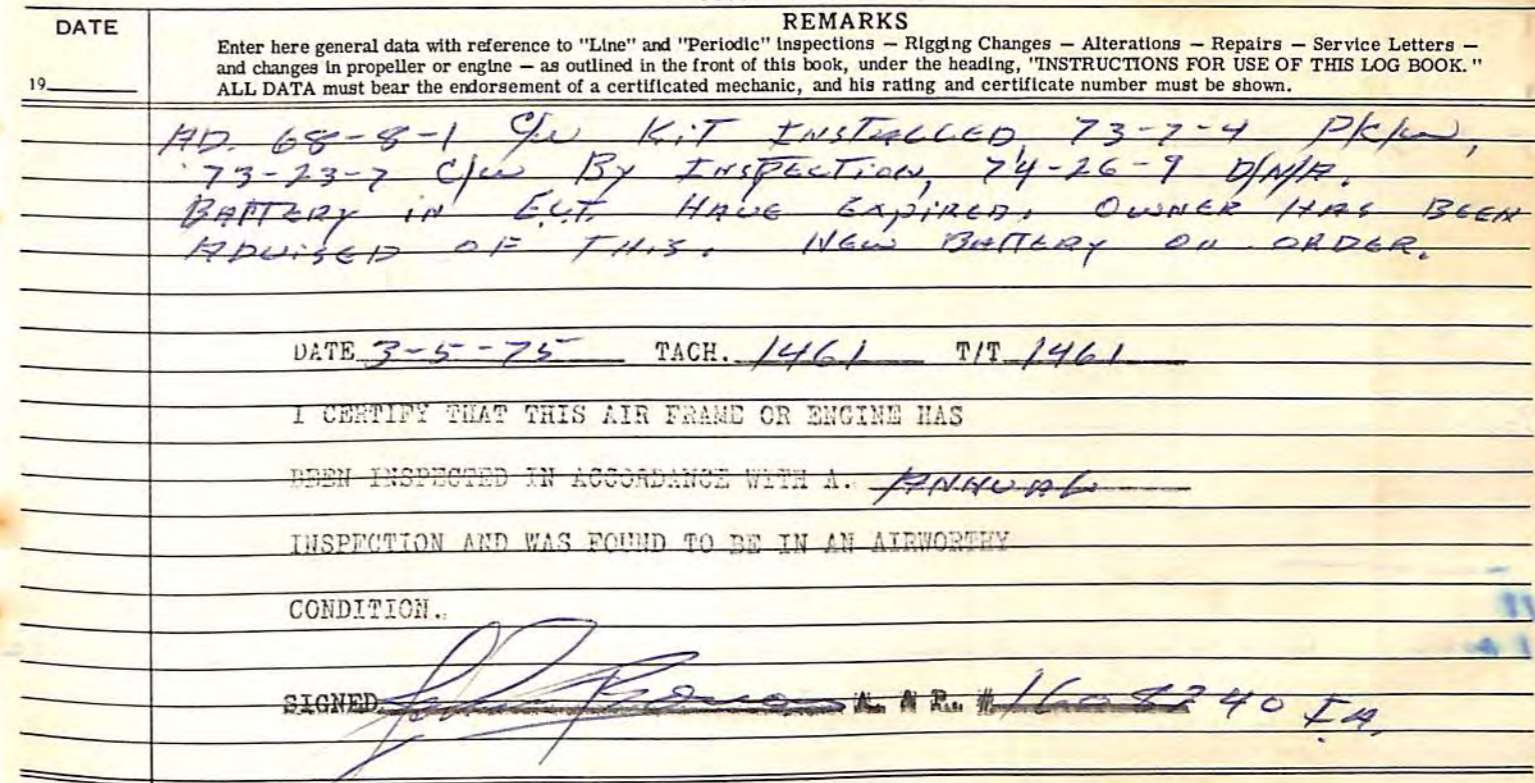 DATE
REMARKS
Enter here general data with reference to "Line" and "Periodic" Inspections — Rigging Changes — Alterations — Repairs — Service Letters —
and changes in propeller or engine — as outlined in the front of this book, under the heading, "INSTRUCTIONS FOR USE OF THIS LOG BOOK."
19
ALL DATA must bear the endorsement of a certificated mechanic, and his rating and certificate number must be shown.
AD. 68-8-1 C/W KIT INSTALLED, 73-7-4 P/C/W,
73-23-7 C/W By INSPECTION, 74-26-9 D/N/A.
BATTERY IN E.L.T. HAVE EXPIRED. OWNER HAS BEEN
ADVISED OF THIS. NEW BATTERY ON ORDER.
DATE 3-5-75 TACH. 1461 T/T 1461
I CERTIFY THAT THIS AIR FRAME OR ENGINE HAS
BEEN INSPECTED IN ACCORDANCE WITH A. ANNUAL
INSPECTION AND WAS FOUND TO BE IN AN AIRWORTHY
CONDITION.
SIGNED A. & P. # 1608240 IA.